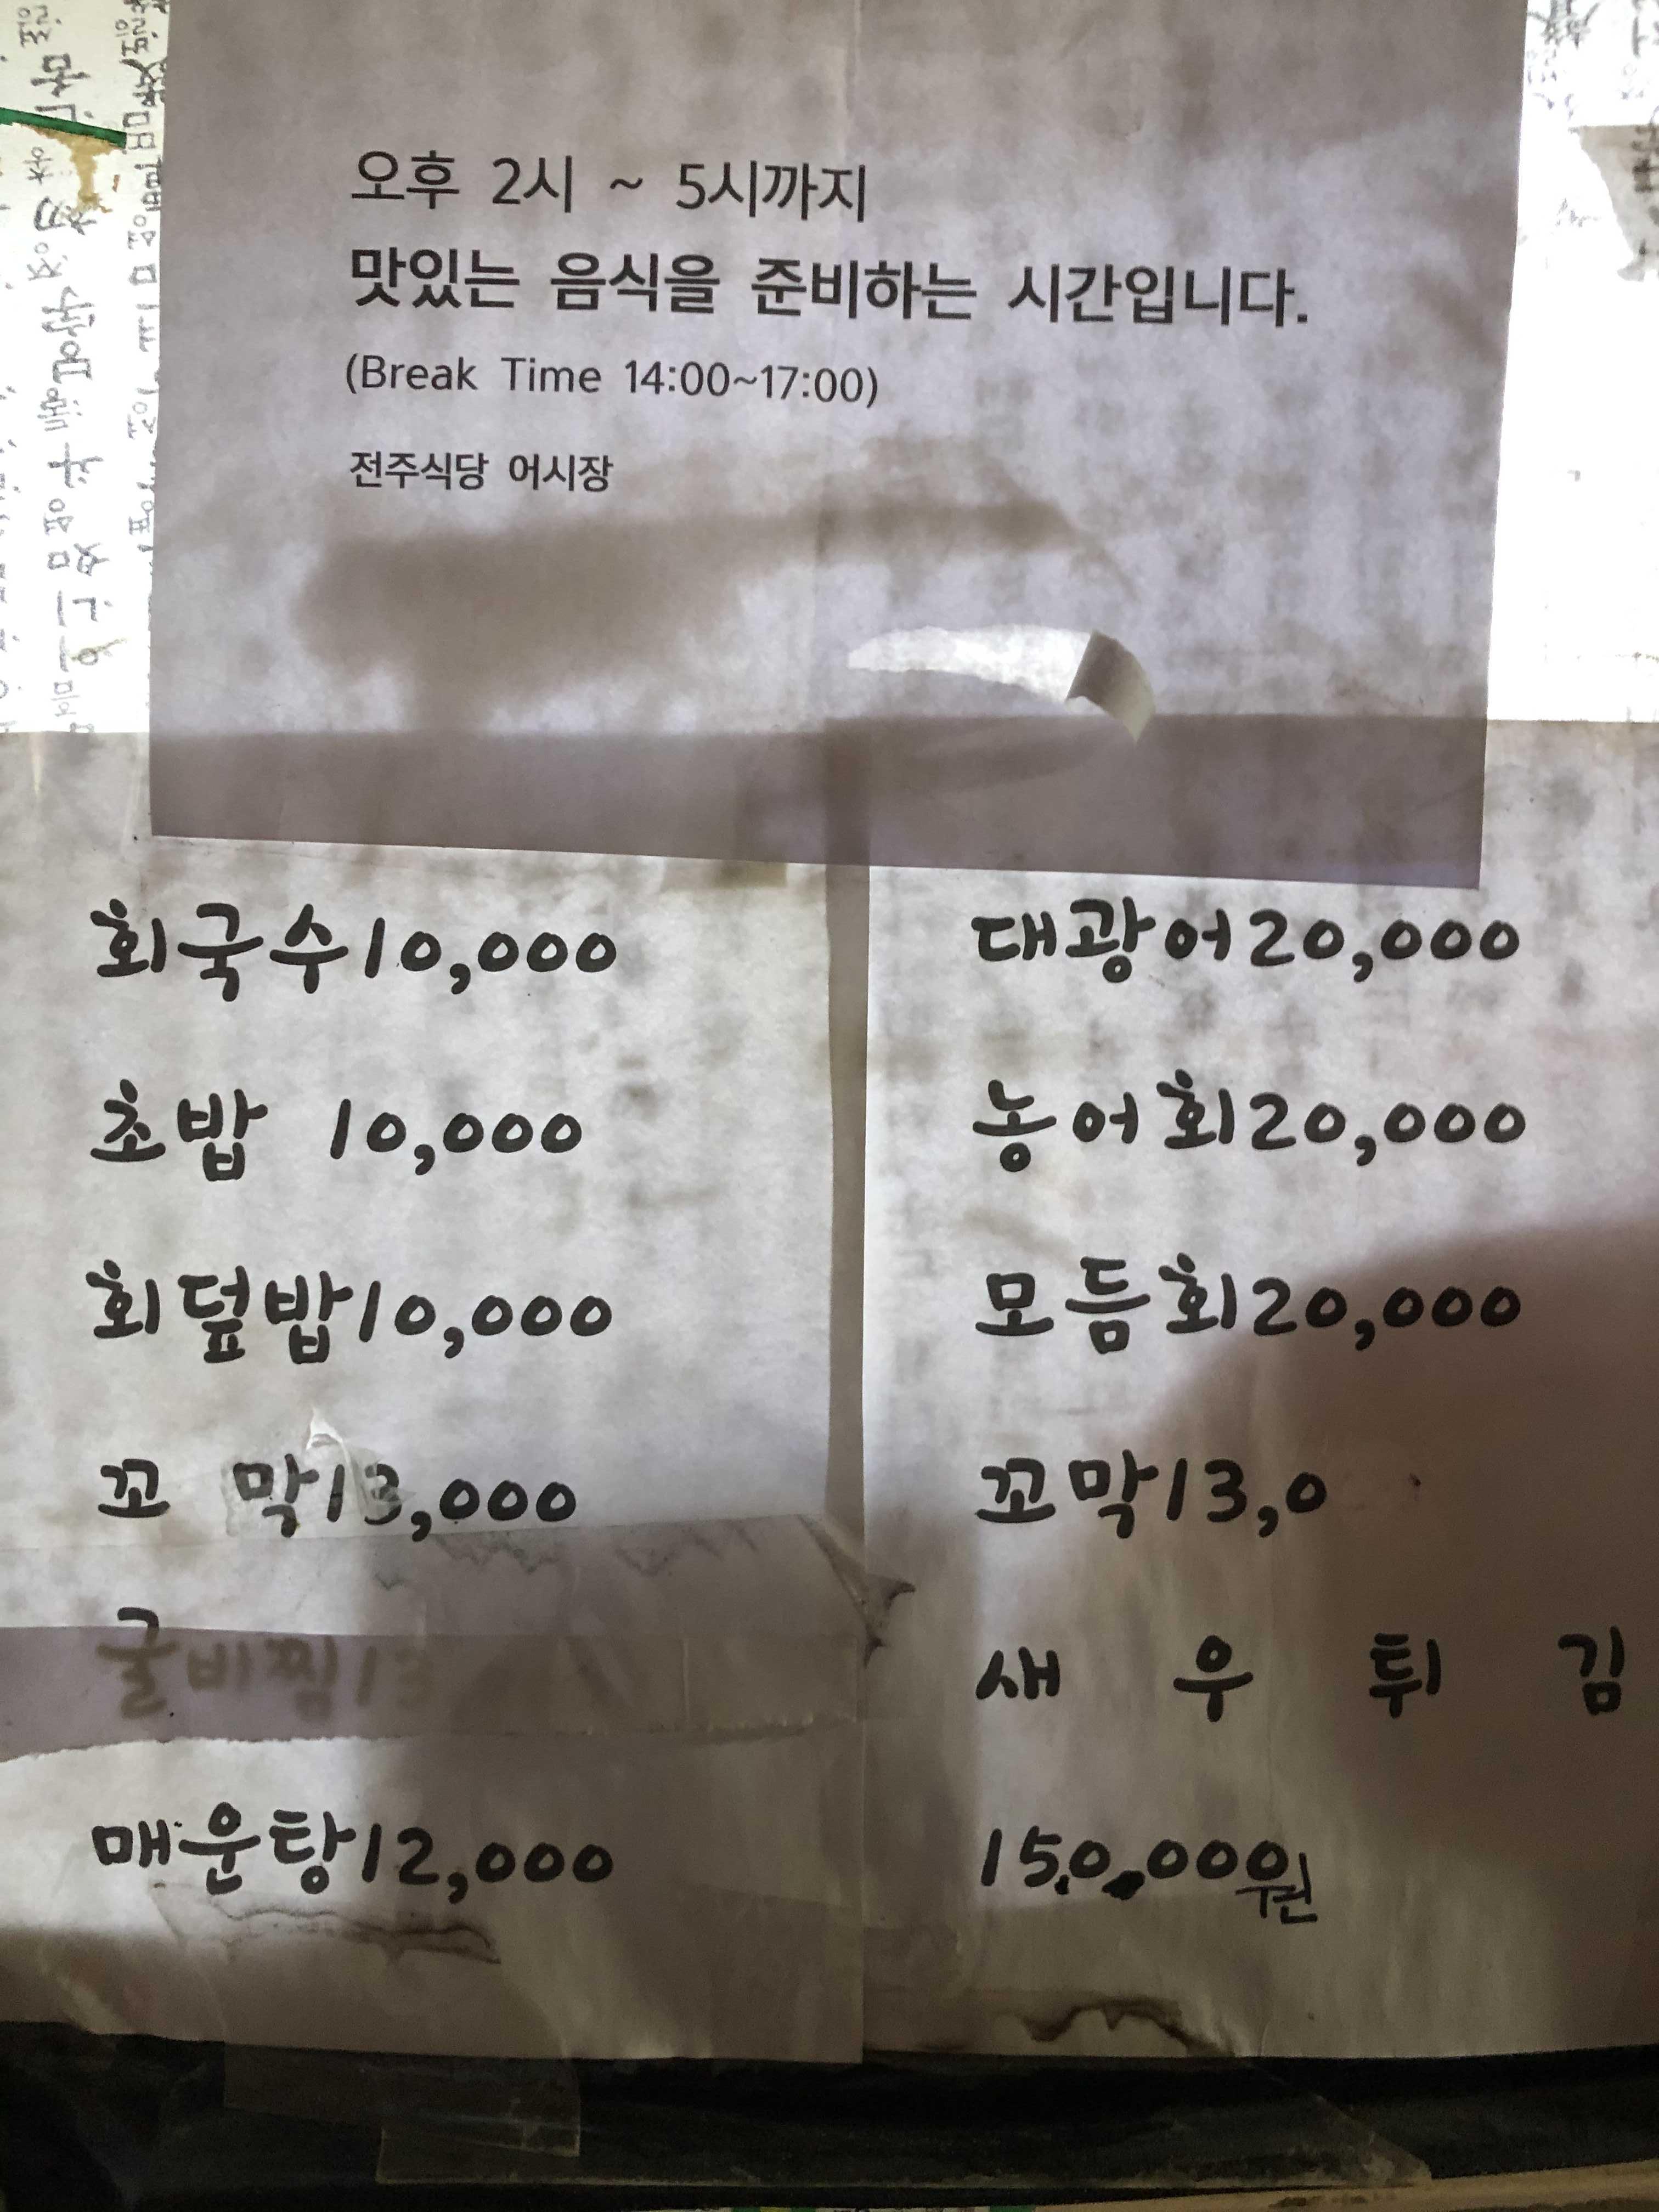 오후 2시 ~ 5시까지
맛있는 음식을 준비하는 시간입니다.
(Break Time 14:00~17:00)
전주식당 어시장
회국수10,000
초밥 10,000
회덮밥10,000
꼬 막13,000
굴비찜13
매운탕12,000
대광어20,000
농어회20,000
모듬회20,000
꼬막13,0
새 우 튀 김
150,000원